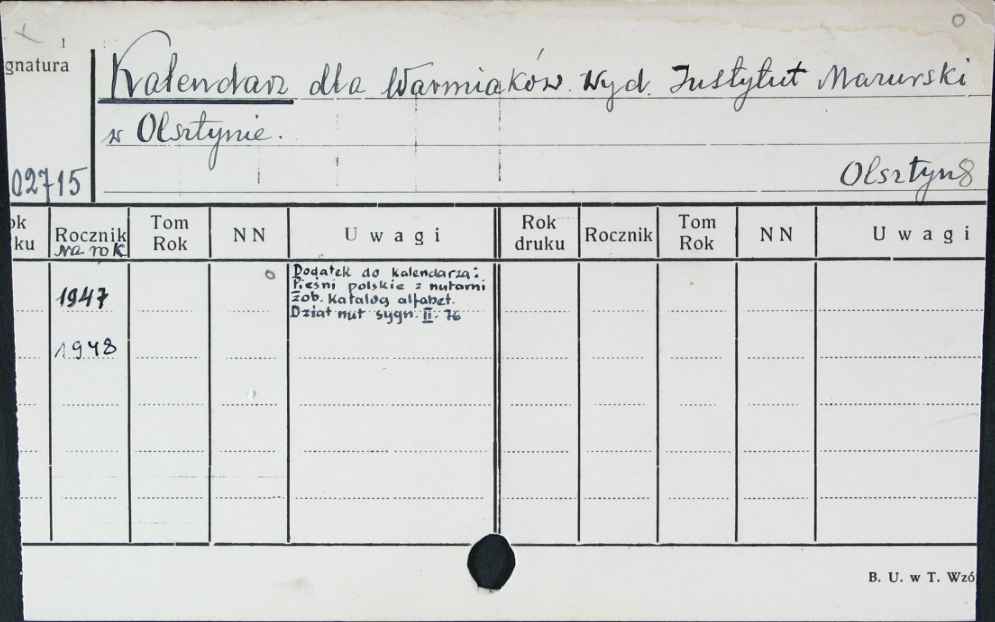 gnatura
Kalendarz dla Warmiaków. Wyd. Instytut Mazurski
w Olsztynie.
02715
Olsztyn
ok
ku
Rocznik
na rok
Tom
Rok
NN
Uwagi
Rok
druku
Rocznik
Tom
Rok
NN
Uwagi
1947
Dodatek do kalendarza:
Pieśni polskie z nutami
zob. katalog alfabet.
Dział nut sygn. II-76
1948
B. U. w T. Wzó